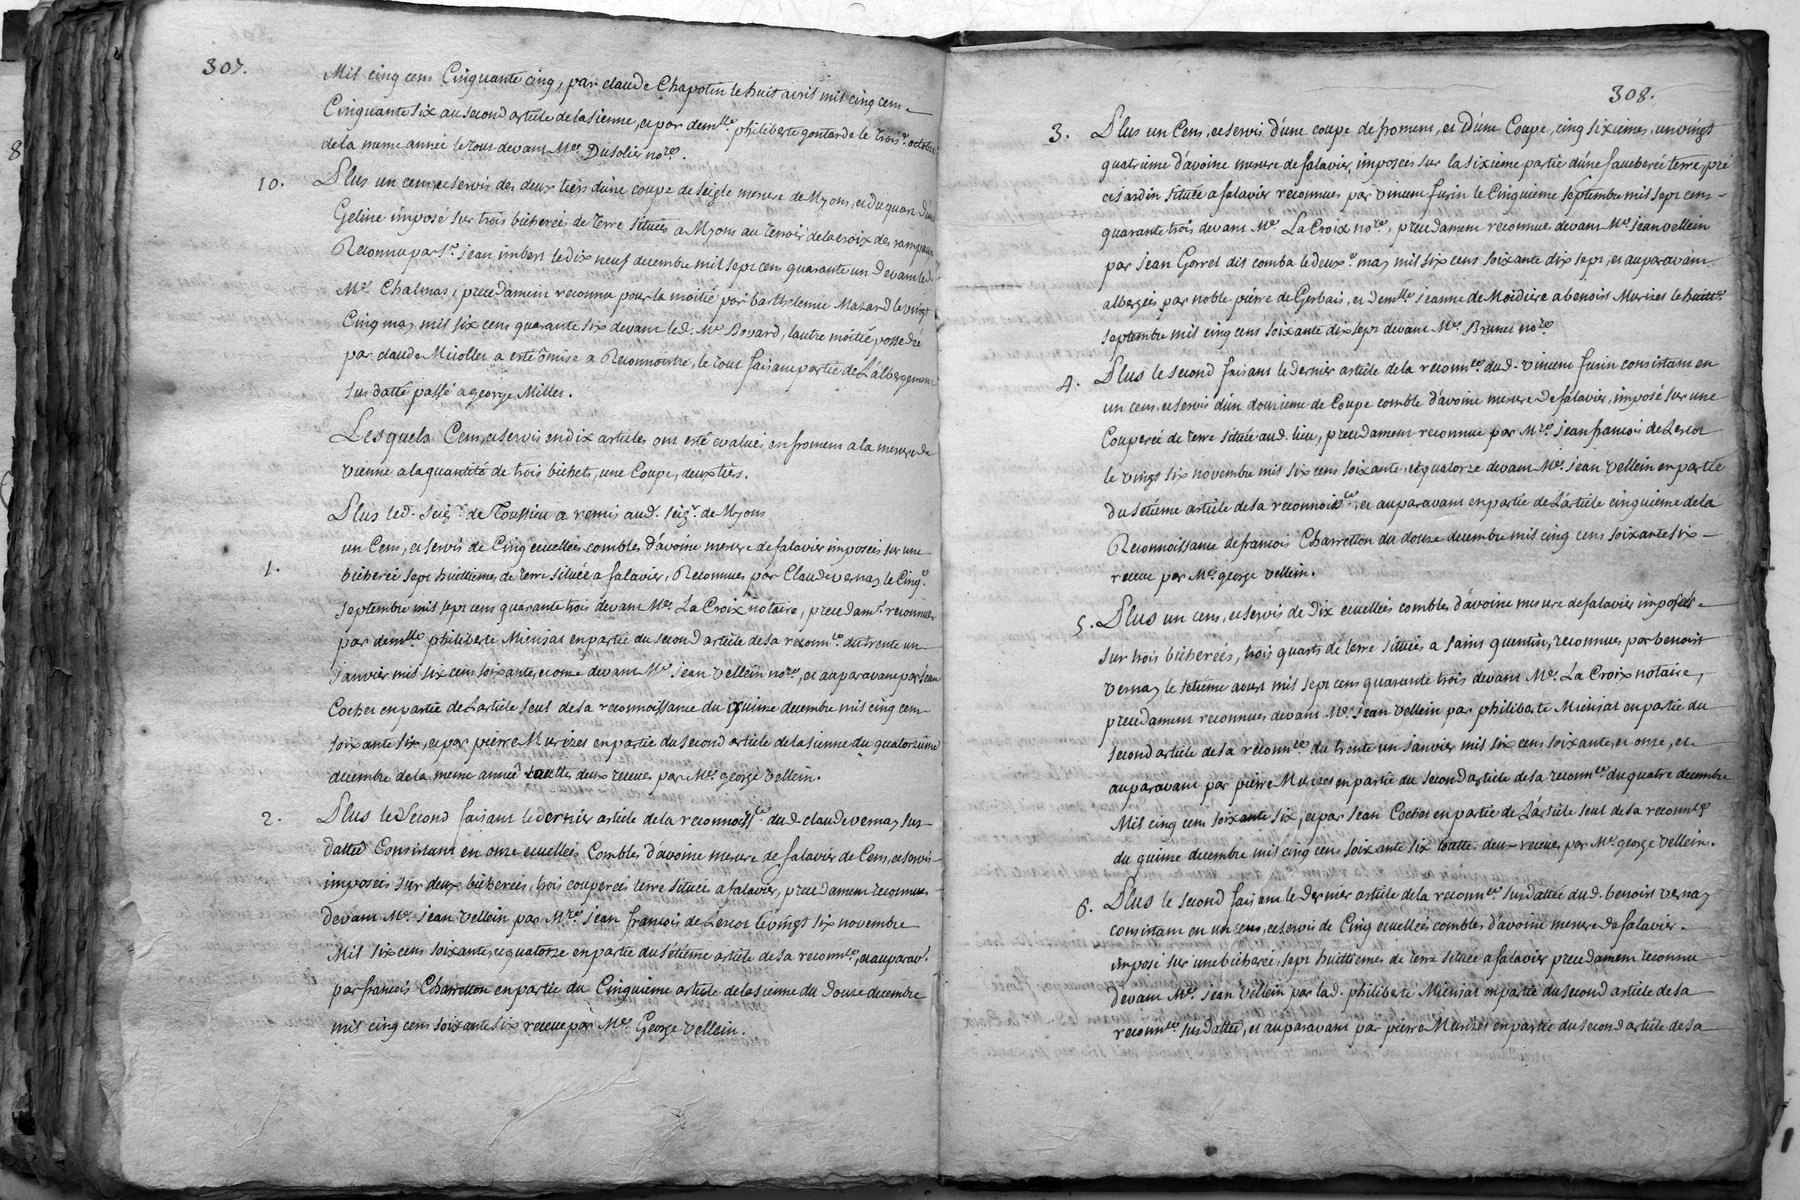 307.
Mil cinq cens Cinquante cinq, par claude Chapotin le huit avril mil cinq cens
Cinquante six au second article de la sienne, et par demlle philiberte gontarde le trois.e octobre
de la meme année le tout devant Mes Dusolier nore.
10. Plus un cens et servis des deux tiers d'une coupe de seigle mesure de Myons, et du quart d'un
Geline imposé sur trois bicherées de terre situées a Myons au terroir de la croix des rampaux
Reconnu par Sr. jean imbert le dix neuf decembre mil sept cens quarante un devant led.
Me. Chalmas, precedament reconnu pour la moitié par barthelemie Mazard le vingt
Cinq may mil six cens quarante six devant led. Me Bovard, l'autre moitié possedée
par claude Micollet a esté omise a Reconnoitre, le tout faisant partie de L'albergement
sus datté passé a george Millet.
Lesquels Cens, et servis en dix articles ont esté evalués en froment a la mesure de
vienne a la quantité de trois bichets, une Coupe, deux ties.
Plus led. seigr. de Toussieu a remis aud. seigr. de Myons
1. un Cens, et servis de Cinq ecuellées combles d'avoine mesure de falavier imposées sur une
bicherée sept huittiemes de terre située a falavier, Reconnues par Claude vernay le Cinqe.
septembre mil sept cens quarante trois devant Me. La Croix notaire, precedamt. reconnues
par demlle philiberte Miensat en partie du second article de sa reconnce. du trente un
janvier mil six cens soixante, et onze devant Me jean vellein nore, et auparavant par jean
Cochet en partie de L'article seul de sa reconnoissance du quinze decembre mil cinq cens
soixante six, et par pierre Murizes en partie du second article de la sienne du quatorzieme
decembre de la meme année toutte deux receues par Me. george vellein.
2. Plus le second faisant le dernier article de la reconnoissce. dud. claude vernay sus-
dattée Consistant en onze ecuellées Combles d'avoine mesure de falavier de Cens, et servis
imposées sur deux bicherées, trois couperées terre situées a falavier, precedament reconnues
devant Me. jean vellein par Mre. jean francois de Lescot le vingt six novembre
Mil six cens soixante, et quatorze en partie du setieme article de sa reconnce, et auparavt.
par francois Charretton en partie du Cinquieme article de la sienne du douze decembre
mil cinq cens soixante six receue par Me. George vellein.
308.
3. Plus un Cens, et servis d'une coupe de froment, et d'une Coupe, cinq sixiemes, un vingt
quatrieme d'avoine mesure de falavier, imposées sur la sixieme partie d'une faucherée terre, pré
et jardin situés a falavier reconnues par vincent furin le Cinquieme septembre mil sept cens
quarante trois devant Me. La Croix nore, precedament reconnues devant Me. jean vellein
par jean Gorrel dit comba le deuxe. may mil six cens soixante dix sept, et auparavant
albergés par noble pierre de Gerbais, et demlle jeanne de Moidiere a benoit Murizes le huitte
septembre mil cinq cens soixante dix sept devant Me. Brunet nore
4. Plus le second faisant le dernier article de la reconnce dud. vincent furin consistant en
un cens, et servis d'un douzieme de Coupe comble d'avoine mesure de falavier, imposé sur une
Couperée de terre située aud. lieu, precedament reconnue par Mre. jean francois de Lescot
le vingt six novembre mil six cens soixante, et quatorze devant Me. jean vellein en partie
du setieme article de sa reconnoisce, et auparavant en partie de L'article cinquieme de la
Reconnoissance de francois Charretton du douze decembre mil cinq cens soixante six
receue par Me. george vellein.
5. Plus un cens, et servis de dix ecuellées combles d'avoine mesure de falavier imposées
sur trois bicherées, trois quarts de terre situées a saint quentin, reconnues par benoist
vernay le setieme aoust mil sept cens quarante trois devant Me. La Croix notaire,
precedament reconnues devant Me. jean vellein par philiberte Miensat en partie du
second article de sa reconnce du trente un janvier mil six cens soixante, et onze, et
auparavant par pierre Murizes en partie du second article de sa reconnce du quatre decembre
Mil cinq cens soixante six, et par jean Cochet en partie de L'article seul de sa reconnce
du quinze decembre mil cinq cens soixante six toutte deux receues par Me. george vellein.
6. Plus le second faisant le dernier article de la reconnce sus dattée dud. benoist vernay
consistant en un cens, et servis de Cinq ecuellées combles d'avoine mesure de falavier
imposé sur une bicherée, sept huittiemes de terre située a falavier precedament reconnu
devant Me. jean vellein par lad. philiberte Miensat en partie du second article de sa
reconnce sus dattée, et auparavant par pierre Murizes en partie du second article de sa